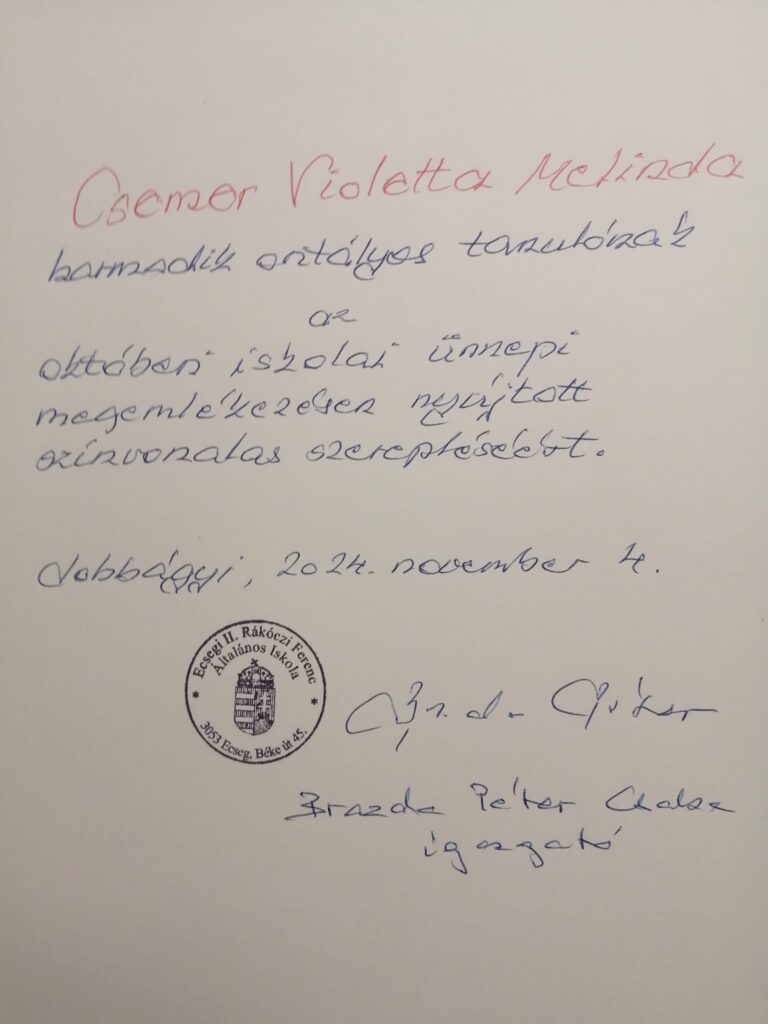 Csemer Violetta Melinda
harmadik osztályos tanulónak
az
októberi iskolai ünnepi
megemlékezésen nyújtott
színvonalas szerepléséért.
Jobbágyi, 2024. november 4.
Ecsegi II. Rákóczi Ferenc
Általános Iskola
3053 Ecseg, Béke út 45.
Brazda Péter Csaba
igazgató